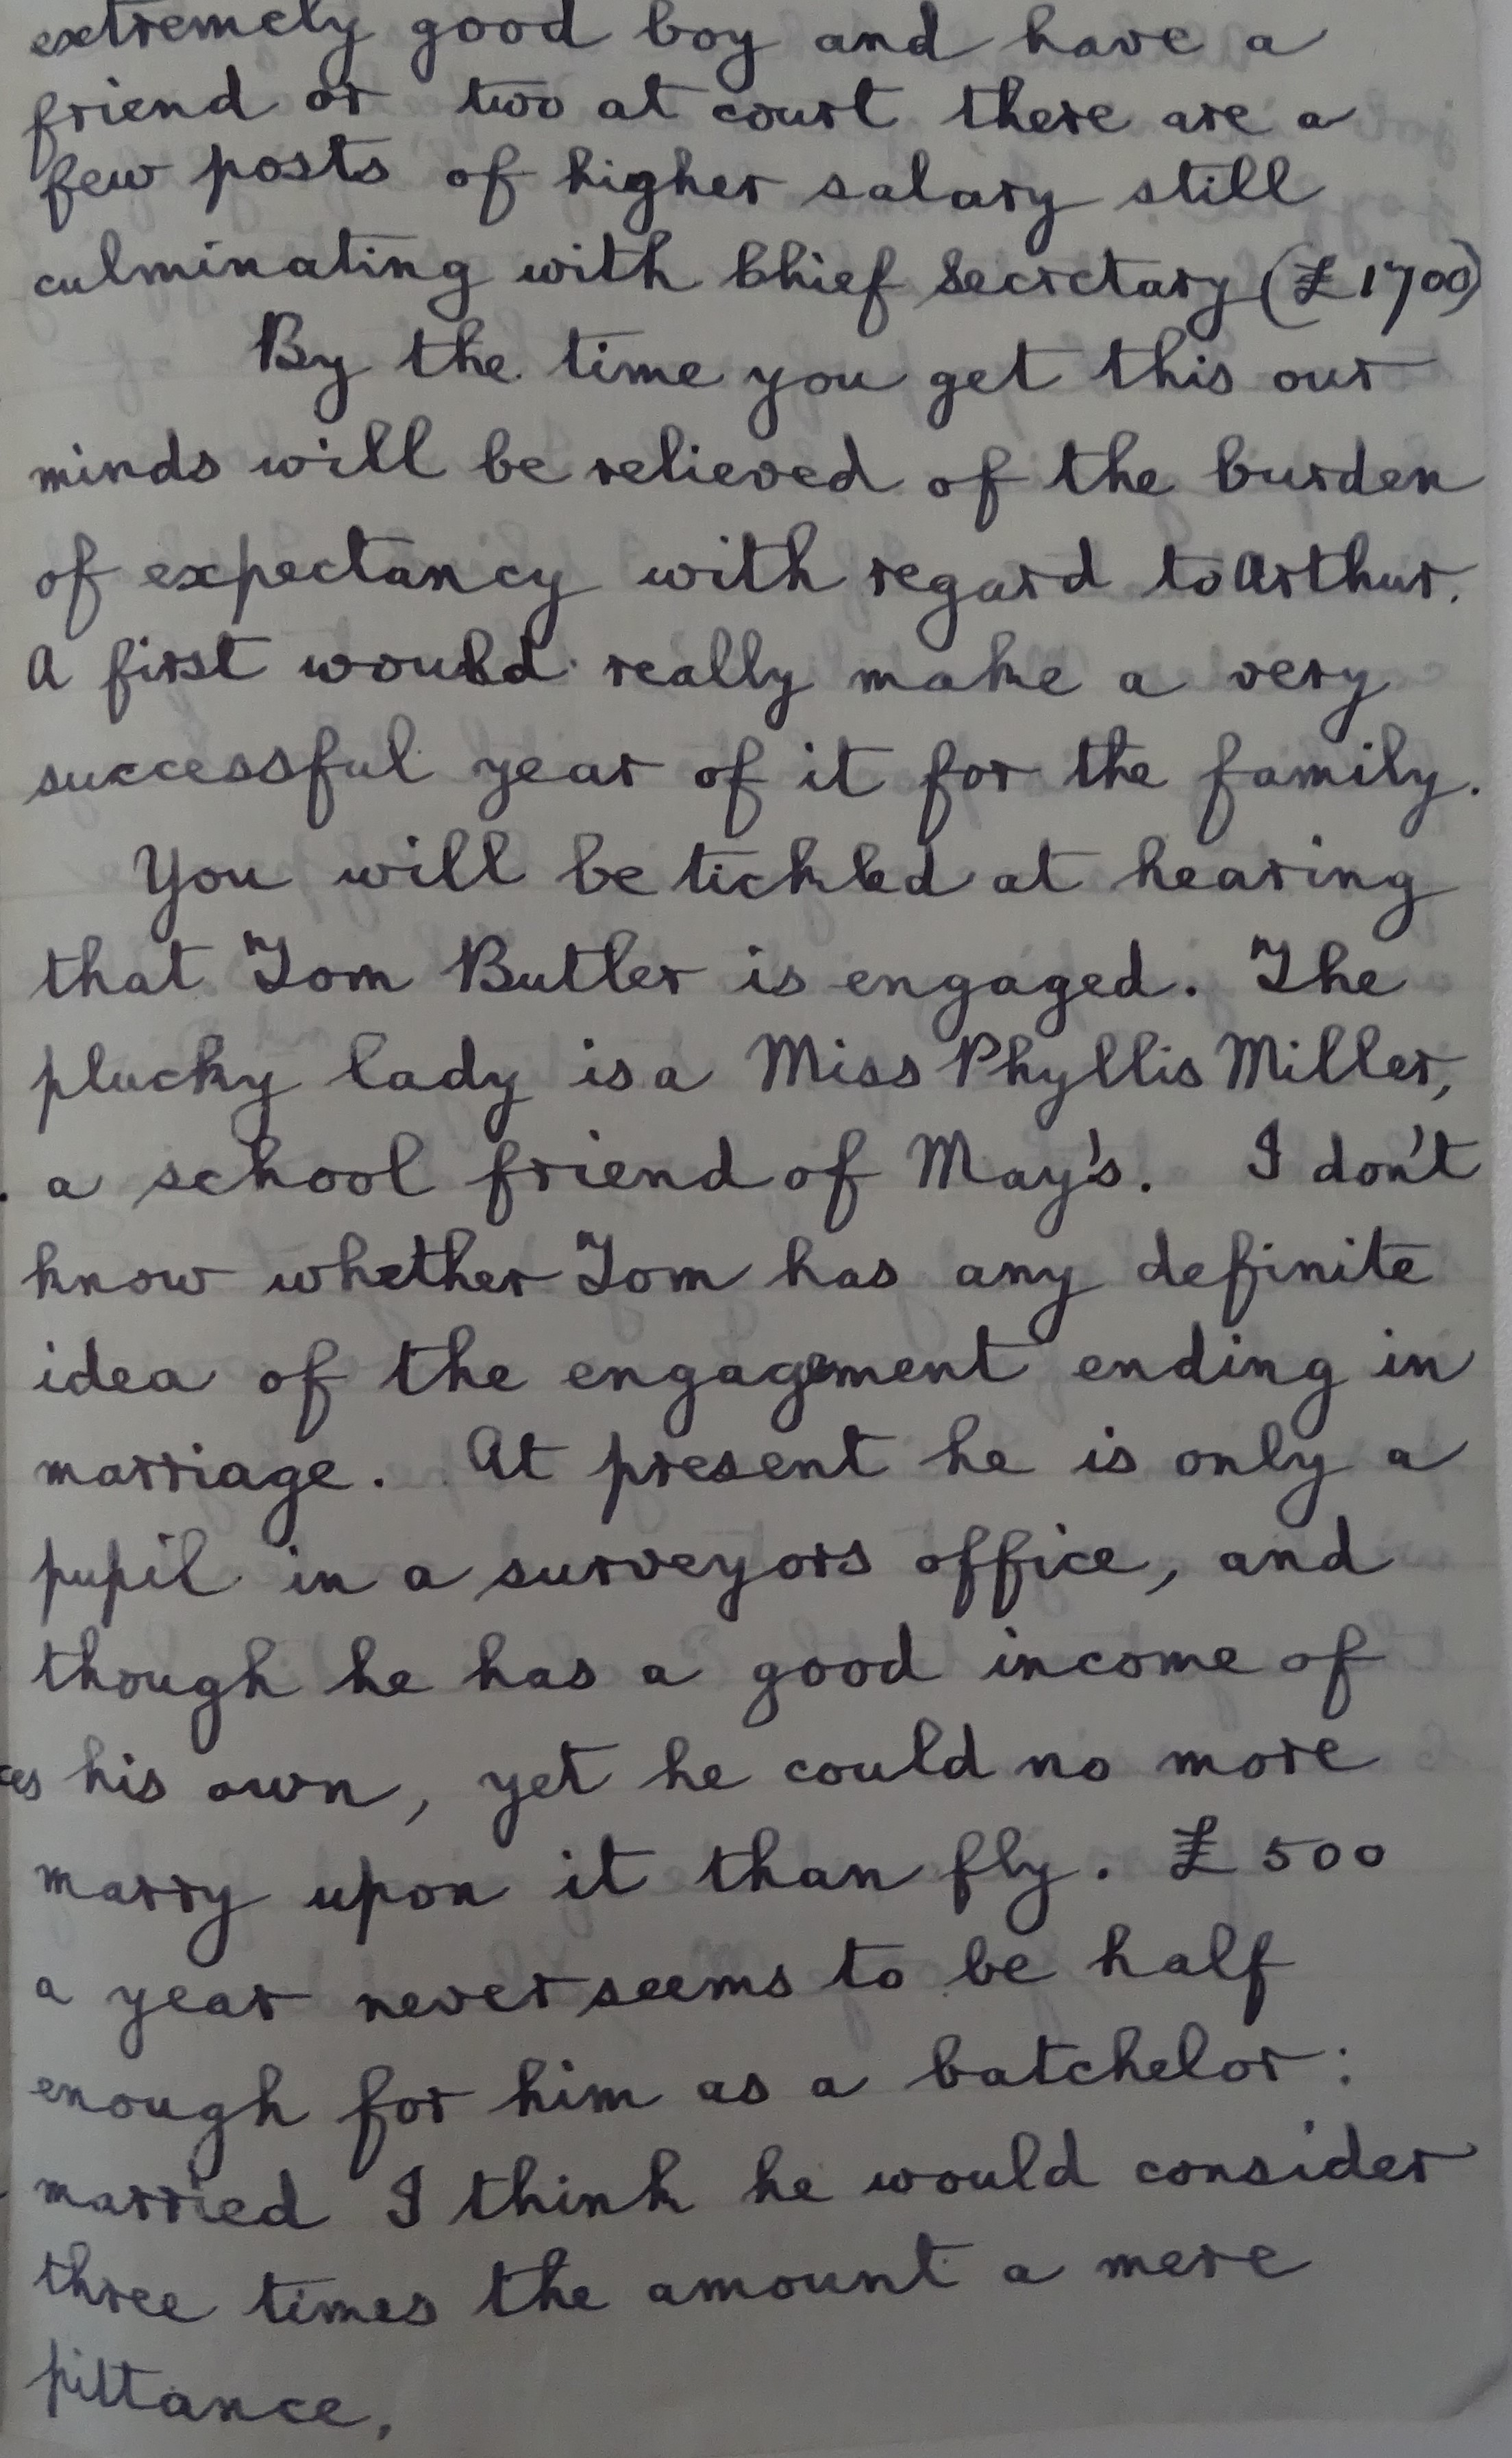 extremely good boy and have a
friend or two at court there are a
few posts of higher salary still
culminating with Chief Secretary (£1700)
By the time you get this our
minds will be relieved of the burden
of expectancy with regard to Arthur.
A first would really make a very
successful year of it for the family.
You will be tickled at hearing
that Tom Butler is engaged. The
plucky lady is a Miss Phyllis Miller,
a school friend of May's. I don't
know whether Tom has any definite
idea of the engagement ending in
marriage. At present he is only a
pupil in a surveyors office, and
though he has a good income of
his own, yet he could no more
marry upon it than fly. £500
a year never seems to be half
enough for him as a batchelor:
married I think he would consider
three times the amount a mere
pittance,